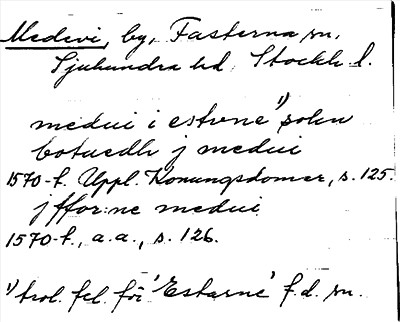 Medevi, by, Fasterna sn.
Sjuhundra hd, Stockh. l.
medui i estvne ¹) sokn
botuedh j medui
1570-t. Uppl. Konungsdomar, s. 125.
j ffor:ne medui
1570-t., a.a., s. 126.
¹) trol. fel. för 'Estarne' f.d. sn.